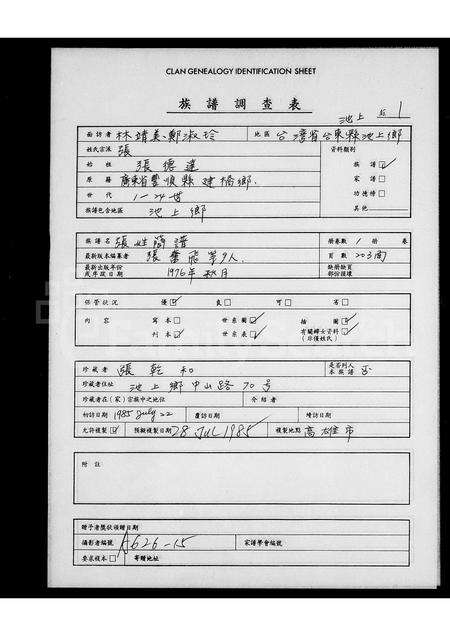 CLAN GENEALOGY IDENTIFICATION SHEET
族譜調查表
池上 1
面訪者 林靖美、鄭淑玲 地區 台灣省台東縣池上鄉
姓氏宗派 張 資料類別
始祖 張德達 族譜☑
原籍 廣東省豐順縣建橋鄉. 家譜☐
世代 1-24世 功德榜☐
族譜包含地區 池上鄉 其他
族譜名 張姓簡譜 冊卷數 1 冊 卷
最新版本編纂者 張 等9人 頁數 203面
最新出版年份 或序跋日期 1976年秋月 餘冊餘頁 部份損壞
保管狀況 優☑ 良☐ 可☐ 窳☐
內容 寫本☐ 世系圖☑ 插圖☑
刊本☑ 世系表☑ 有關婦女資料☑ (非僅姓氏)
珍藏者 張乾和 是否列入本族譜 否
珍藏者住址 池上鄉中山路70号
珍藏者在(家)宗族中之地位 介紹者
初訪日期 1985 July 22 覆訪日期 增訪日期
允許複製☑ 預擬複製日期 28 JUL 1985 複製地點 高雄市
附註
贈予者獎狀領贈日期
攝影者編號 A626-15 家譜學會編號
要求複本☐ 寄贈地址